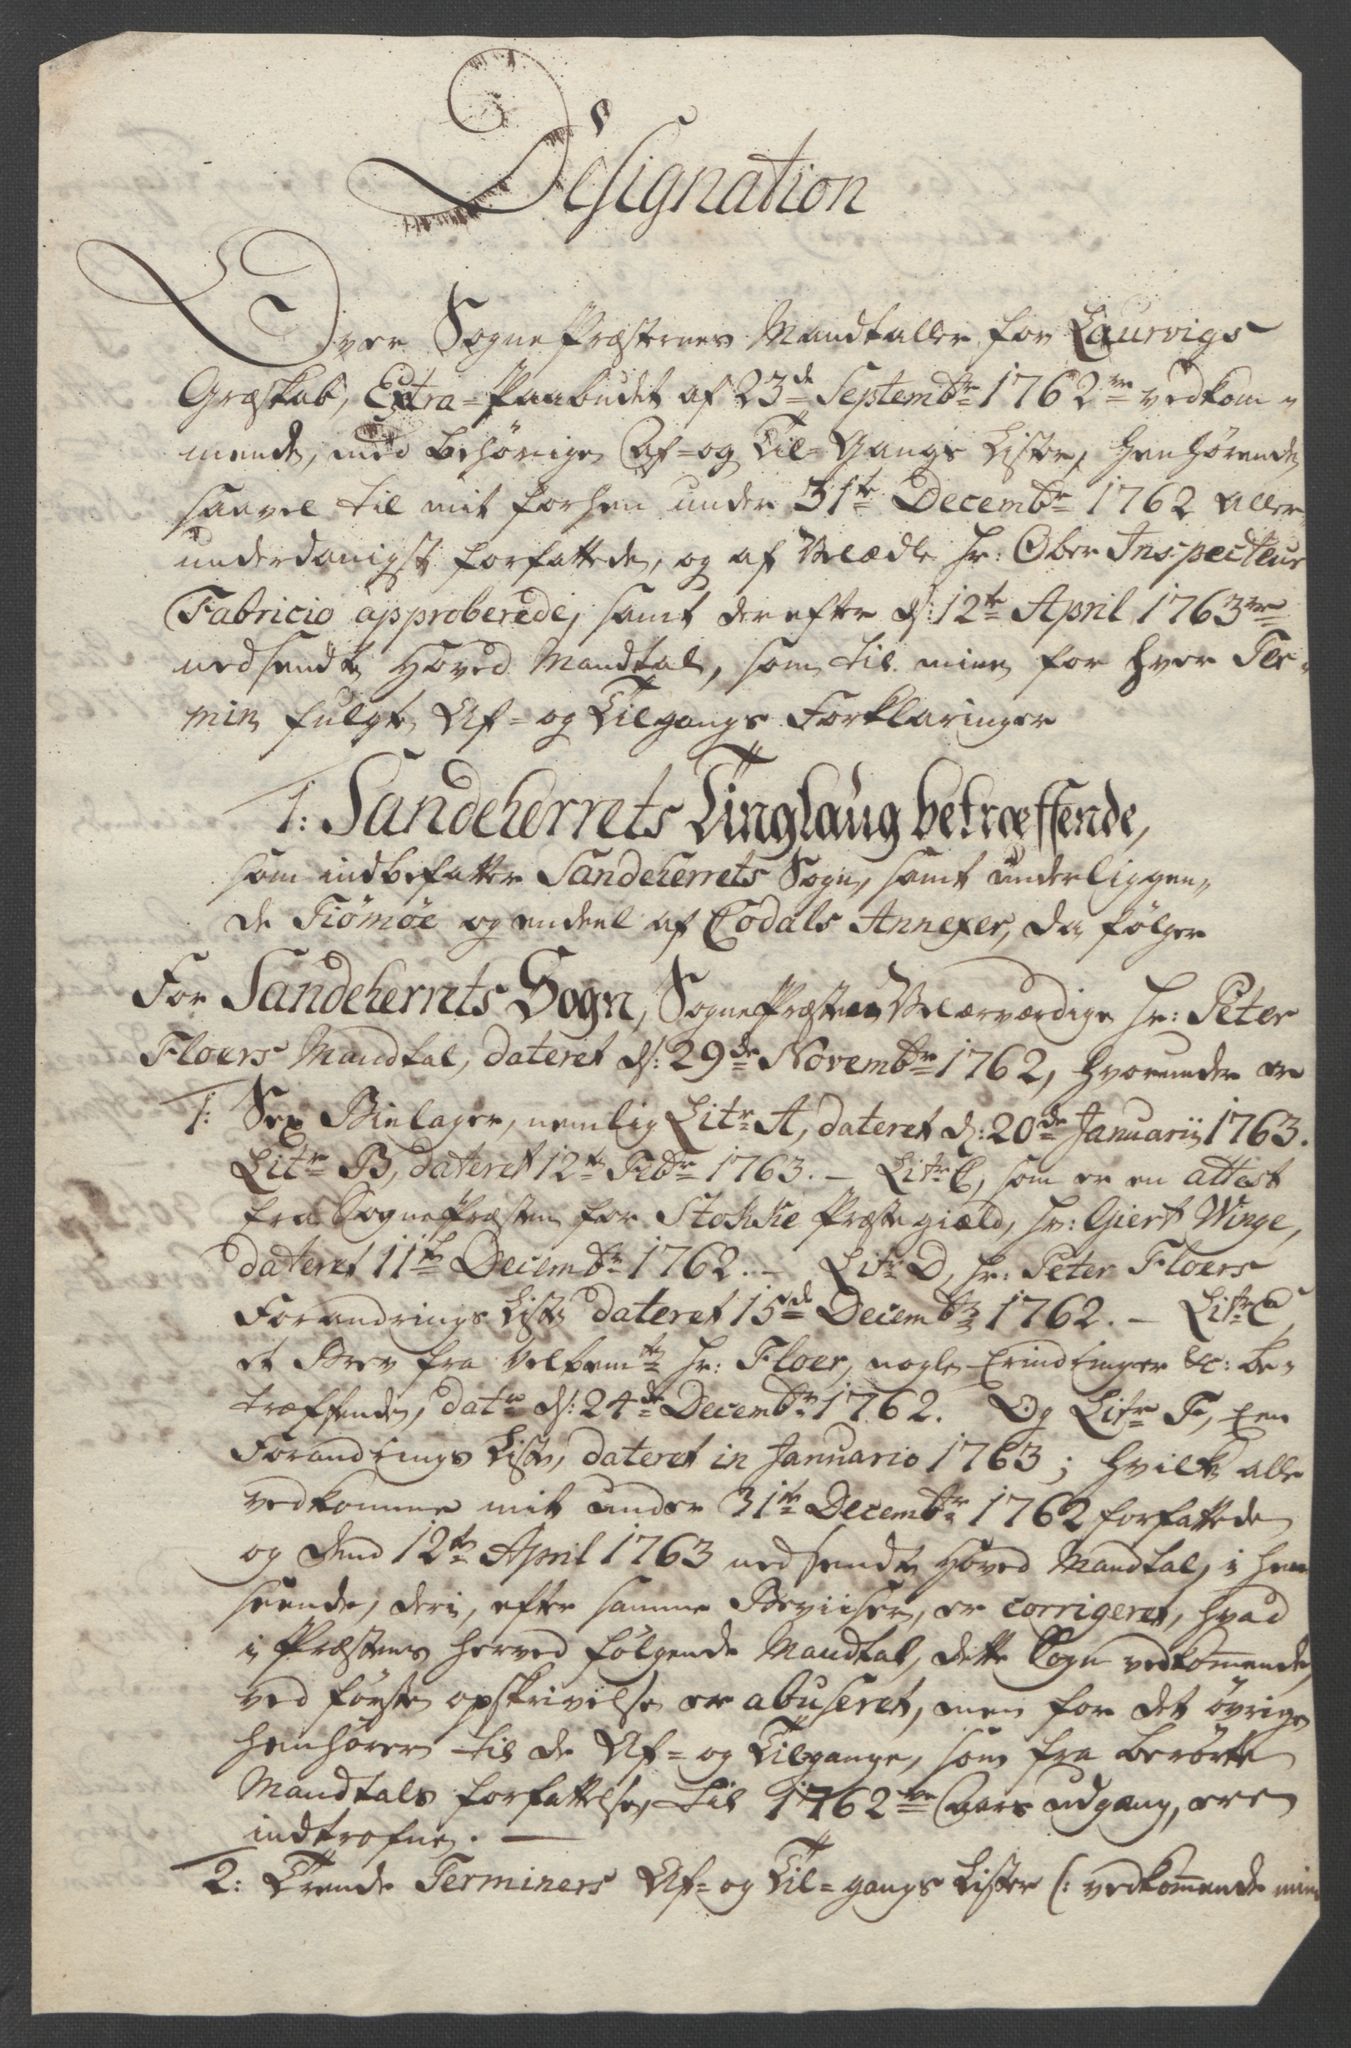 Designation
Over SognePræsternes Mandtaller for Laurvigs
Græfskab, Extra-Paabudet af 23de Septembr 1762 vedkom-
mende, med behørige Af- og Til-Gangs Lister, henhørende
saavel til mit forhen under 31te Decembr 1762 aller-
underdanigst forfattede, og af Velædle Hr: Ober Inspecteur
Fabricio approberede, samt derefter d: 12te April 1763
nedsendte Hoved Mandtal, som til mine for hver Ter-
min fulgte Af- og Tilgangs Forklaringer
1: Sandeherrets Tinglaug betræffende,
som indbefatter Sandeherrets Sogn, samt underliggen-
de Tiömöe og endeel af Kodals Annexer, da følger
For Sandeherrets Sogn, SognePræsten Velærværdige Hr: Peter
Floers Mandtal, dateret d: 29de Novembr 1762, hvorunder er
1: Sex Bielager, nemlig Litr A, dateret d: 20de Januarii 1763.
Litr B, dateret 12te Febr 1763. – Litr C, som er en attest
fra SognePræsten for Stokke Præstegiæld, Hr: Giert Winge,
dateret 11te Decembr 1762. – Litr D, Hr: Peter Floers
Forandrings Liste dateret 15de Decembr 1762. – Litr E,
et Brev fra Velbemte Hr: Floer, nogle Erindringer &c: be-
træffende, datr d: 24de Decembr 1762. Og Litr F, Een
Forandrings Liste, dateret in Januario 1763; hvilke alle
vedkomme mit under 31te Decembr 1762 forfattede
og dend 12te April 1763 nedsendte Hoved Mandtal, i hen-
seende, deri, efter samme Beviiser, er corrigeret, hvad
i Præstens herved følgende Mandtal, dette Sogn vedkommende,
ved første opskrivelse er abuseret, men for det øvrige
henhører til de Af- og Tilgange, som fra berørte
Mandtals forfattelse, til 1762 Aars udgang, ere
indtrofne. –
2: Trende Terminers Af- og Til-gangs Lister (: vedkommende mine